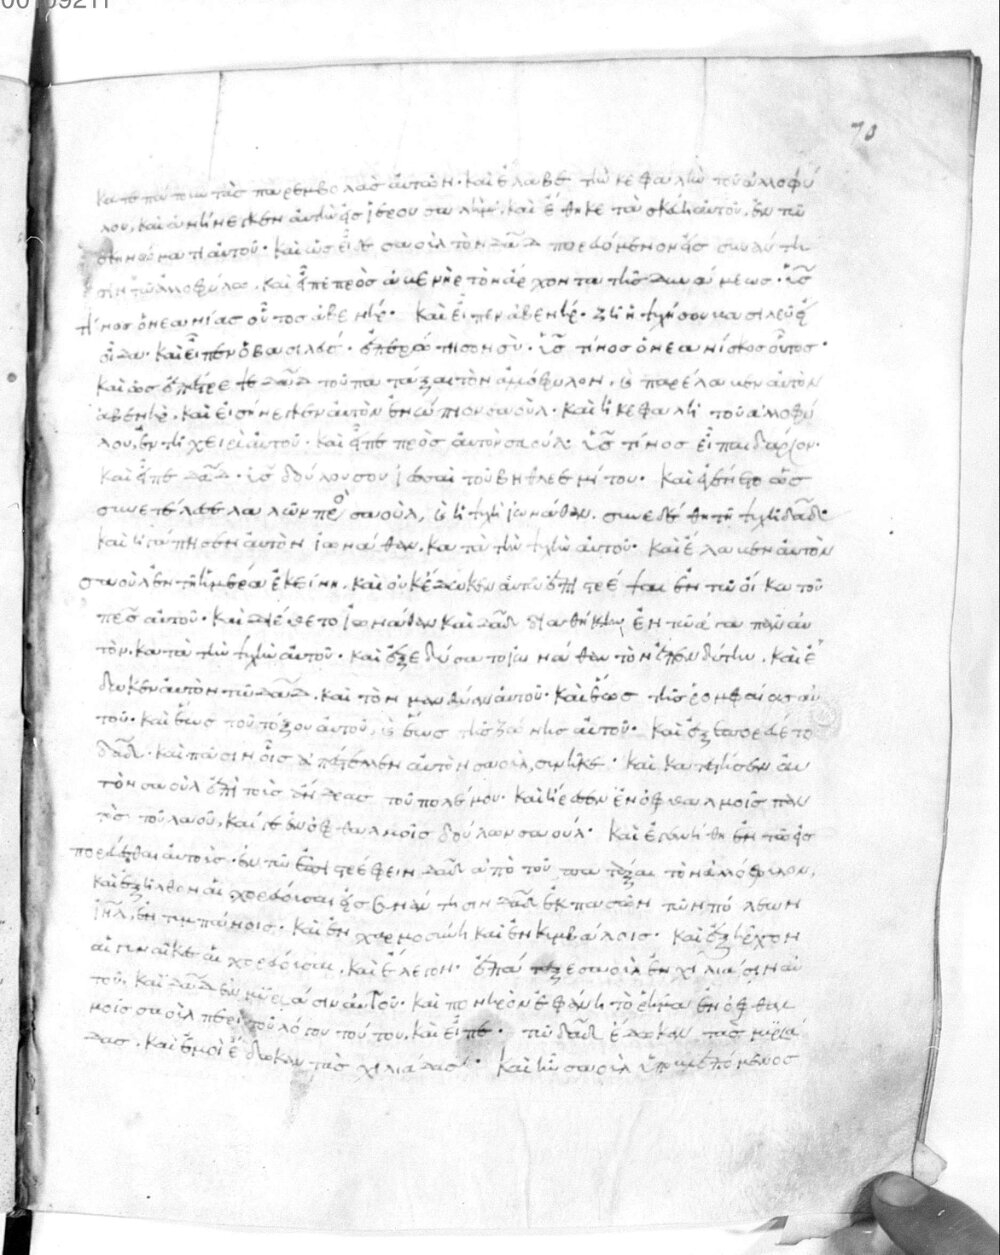 70
κατεπάτουν τὰς παρεμβολὰς αὐτῶν· καὶ ἔλαβε τὴν κεφαλὴν τοῦ ἀλλοφύ
λου, καὶ ἀνήνεγκεν αὐτὴν εἰς ἱερουσαλήμ· καὶ ἔθηκε τὰ σκεύη αὐτοῦ, ἐν τῷ
σκηνώματι αὐτοῦ· καὶ ὡς εἶδε σαοὺλ τὸν δαδ πορευόμενον εἰς συνάντη
σιν τῷ ἀλλοφύλῳ, καὶ εἶπε πρὸς ἀβεννὴρ τὸν ἄρχοντα τῆς δυνάμεως· υἱὸς
τίνος ὁ νεανίας οὗτος ἀβενήρ· καὶ εἶπεν ἀβενήρ· ζῇ ἡ ψυχή σου βασιλεῦ εἰ
οἶδα· καὶ εἶπεν ὁ βασιλεύς· ἐπερώτησον σὺ· υἱὸς τίνος ὁ νεανίσκος οὗτος·
καὶ ὡς ἐπέστρεψε δαδ τοῦ πατάξαι τὸν ἀλλόφυλον, καὶ παρέλαβεν αὐτὸν
ἀβενὴρ, καὶ εἰσήνεγκεν αὐτὸν ἐνώπιον σαοὺλ· καὶ ἡ κεφαλὴ τοῦ ἀλλοφύ
λου, ἐν τῇ χειρὶ αὐτοῦ· καὶ εἶπε πρὸς αὐτὸν σαοὺλ· υἱὸς τίνος εἶ παιδάριον·
καὶ εἶπε δαδ· υἱὸς δούλου σου ἰεσσαὶ τοῦ βηθλεεμίτου· καὶ ἐγένετο ὡς
συνετέλεσε λαλῶν πρὸς σαοὺλ, καὶ ἡ ψυχὴ ἰωνάθαν συνεδέθη τῇ ψυχῇ δαδ
καὶ ἠγάπησεν αὐτὸν ἰωνάθαν, κατὰ τὴν ψυχὴν αὐτοῦ· καὶ ἔλαβεν αὐτὸν
σαοὺλ ἐν τῇ ἡμέρᾳ ἐκείνῃ, καὶ οὐκ ἔδωκεν αὐτῷ ἐπιστρέψαι ἐν τῷ οἴκῳ τοῦ
πρς αὐτοῦ· καὶ διέθετο ἰωνάθαν καὶ δαδ διαθήκην ἐν τῷ ἀγαπᾶν αὐ
τὸν, κατὰ τὴν ψυχὴν αὐτοῦ· καὶ ἐξεδύσατο ἰωνάθαν τὸν ἐπενδύτην, καὶ ἔ
δωκεν αὐτὸν τῷ δαδ, καὶ τὸν μανδύαν αὐτοῦ· καὶ ἕως τῆς ῥομφαίας αὐ
τοῦ· καὶ ἕως τοῦ τόξου αὐτοῦ, καὶ ἕως τῆς ζώνης αὐτοῦ· καὶ ἐξεπορεύετο
δαδ· καὶ πᾶσιν οἷς ἀπέστειλεν αὐτὸν σαοὺλ, συνῆκε· καὶ κατέστησεν αὐ
τὸν σαοὺλ ἐπὶ τοὺς ἄνδρας τοῦ πολέμου· καὶ ἤρεσεν ἐν ὀφθαλμοῖς παν
τὸς τοῦ λαοῦ, καί γε ἐν ὀφθαλμοῖς δούλων σαούλ· καὶ ἐγενήθη ἐν τῷ εἰσ
πορεύεσθαι αὐτοὺς, ἐν τῷ ἐπιστρέφειν δαδ ἀπὸ τοῦ πατάξαι τὸν ἀλλόφυλον,
καὶ ἐξῆλθον αἱ χορεύουσαι εἰς συνάντησιν δαδ ἐκ πασῶν τῶν πόλεων
ἰηλ, ἐν τυμπάνοις· καὶ ἐν χαρμοσύνῃ καὶ ἐν κυμβάλοις· καὶ ἐξῆρχον
αἱ γυναῖκες αἱ χορεύουσαι, καὶ ἔλεγον· ἐπάταξε σαοὺλ ἐν χιλιάσιν αὐ
τοῦ, καὶ δαδ ἐν μυριάσιν αὐτοῦ· καὶ πονηρὸν ἐφάνη τὸ ῥῆμα ἐν ὀφθαλ
μοῖς σαοὺλ περὶ τοῦ λόγου τούτου, καὶ εἶπε· τῷ δαδ ἔδωκαν τὰς μυριά
δας, καὶ ἐμοὶ ἔδωκαν τὰς χιλιάδας· καὶ ἦν σαοὺλ ὑποβλεπόμενος